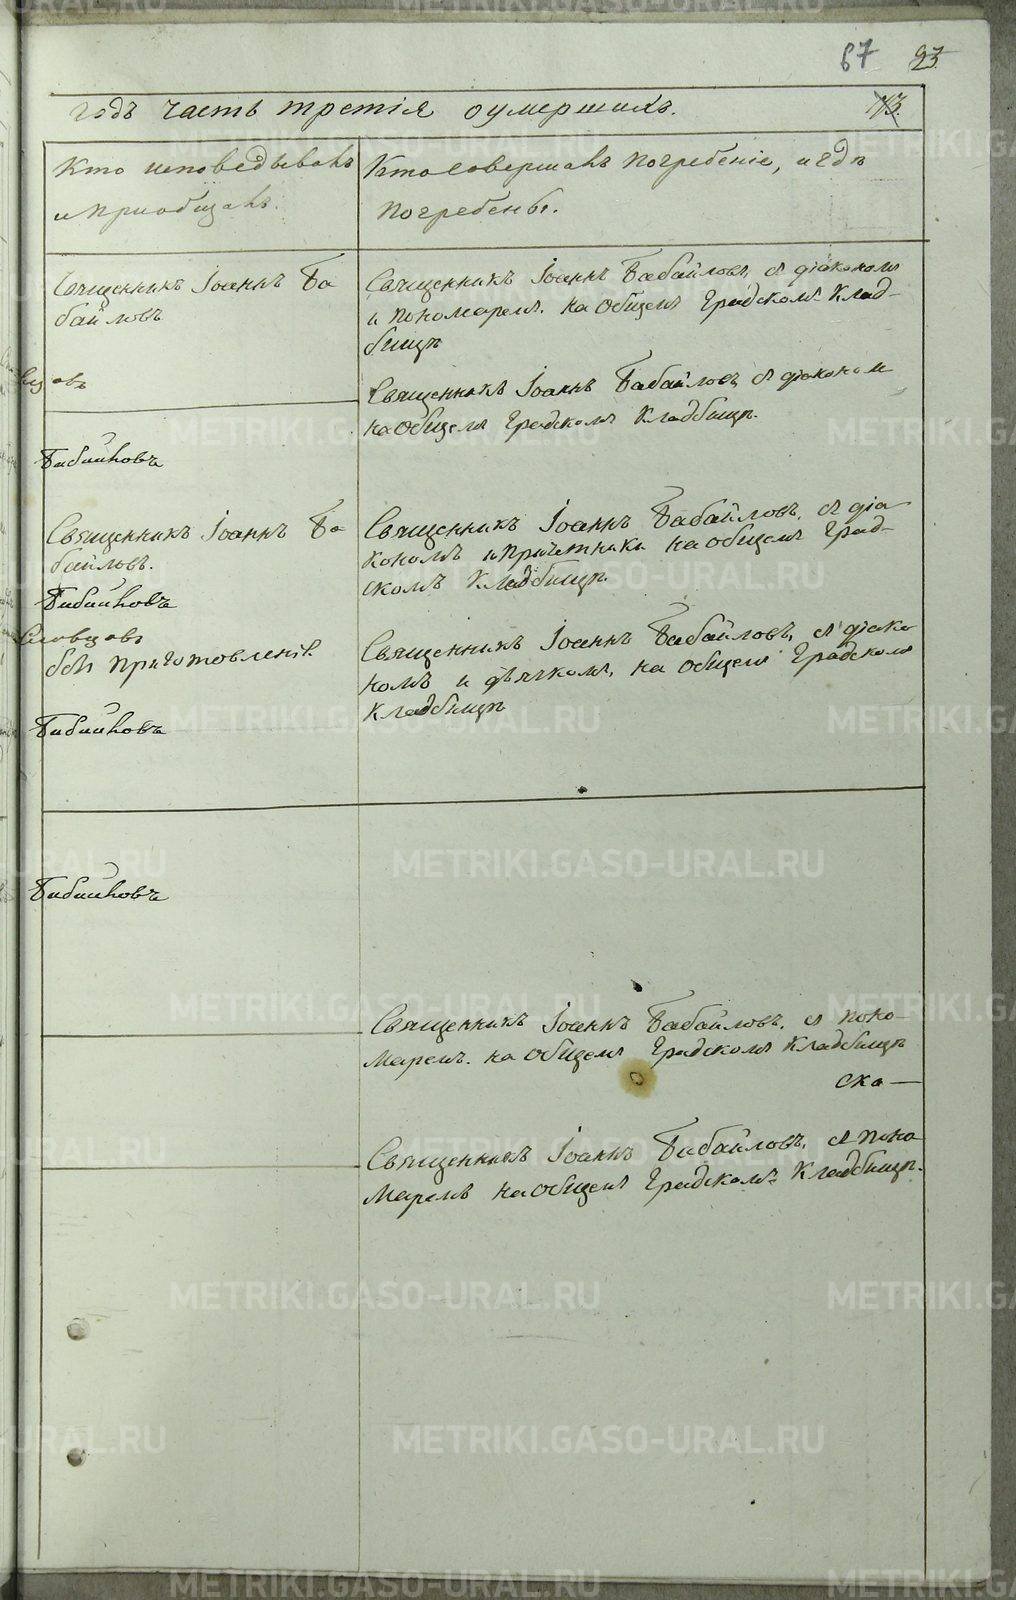 67 93
годъ часть третія оумершихъ. 73.
Кто исповѣдывалъ
и приобщалъ.
Кто совершалъ погребеніе, и гдѣ
погребены.
Священникъ Іоаннъ Ба
байловъ
Священникъ Іоаннъ Бабайловъ, съ діакономъ
и пономаремъ. на общемъ Градскомъ Клад-
бищѣ
Священникъ Іоаннъ Бабайловъ съ діакономъ
на общемъ Градскомъ Кладбищѣ.
Бибиковъ
Священникъ Іоаннъ Ба
байловъ.
Священникъ Іоаннъ Бабайловъ, съ діа
кономъ и причетники на общемъ Град-
скомъ Кладбищѣ.
Бибиковъ
Словцовъ
безъ приготовленія.
Священникъ Іоаннъ Бабайловъ, съ діако
номъ и дьячкомъ, на общемъ Градскомъ
Кладбищѣ
Бибиковъ
Бибиковъ
Священникъ Іоаннъ Бабайловъ. съ поно-
маремъ. на общемъ Градскомъ Кладбищѣ
ска —
Священникъ Іоаннъ Бабайловъ, съ поно
маремъ на общемъ Градскомъ Кладбищѣ.
METRIKI.GASO-URAL.RU